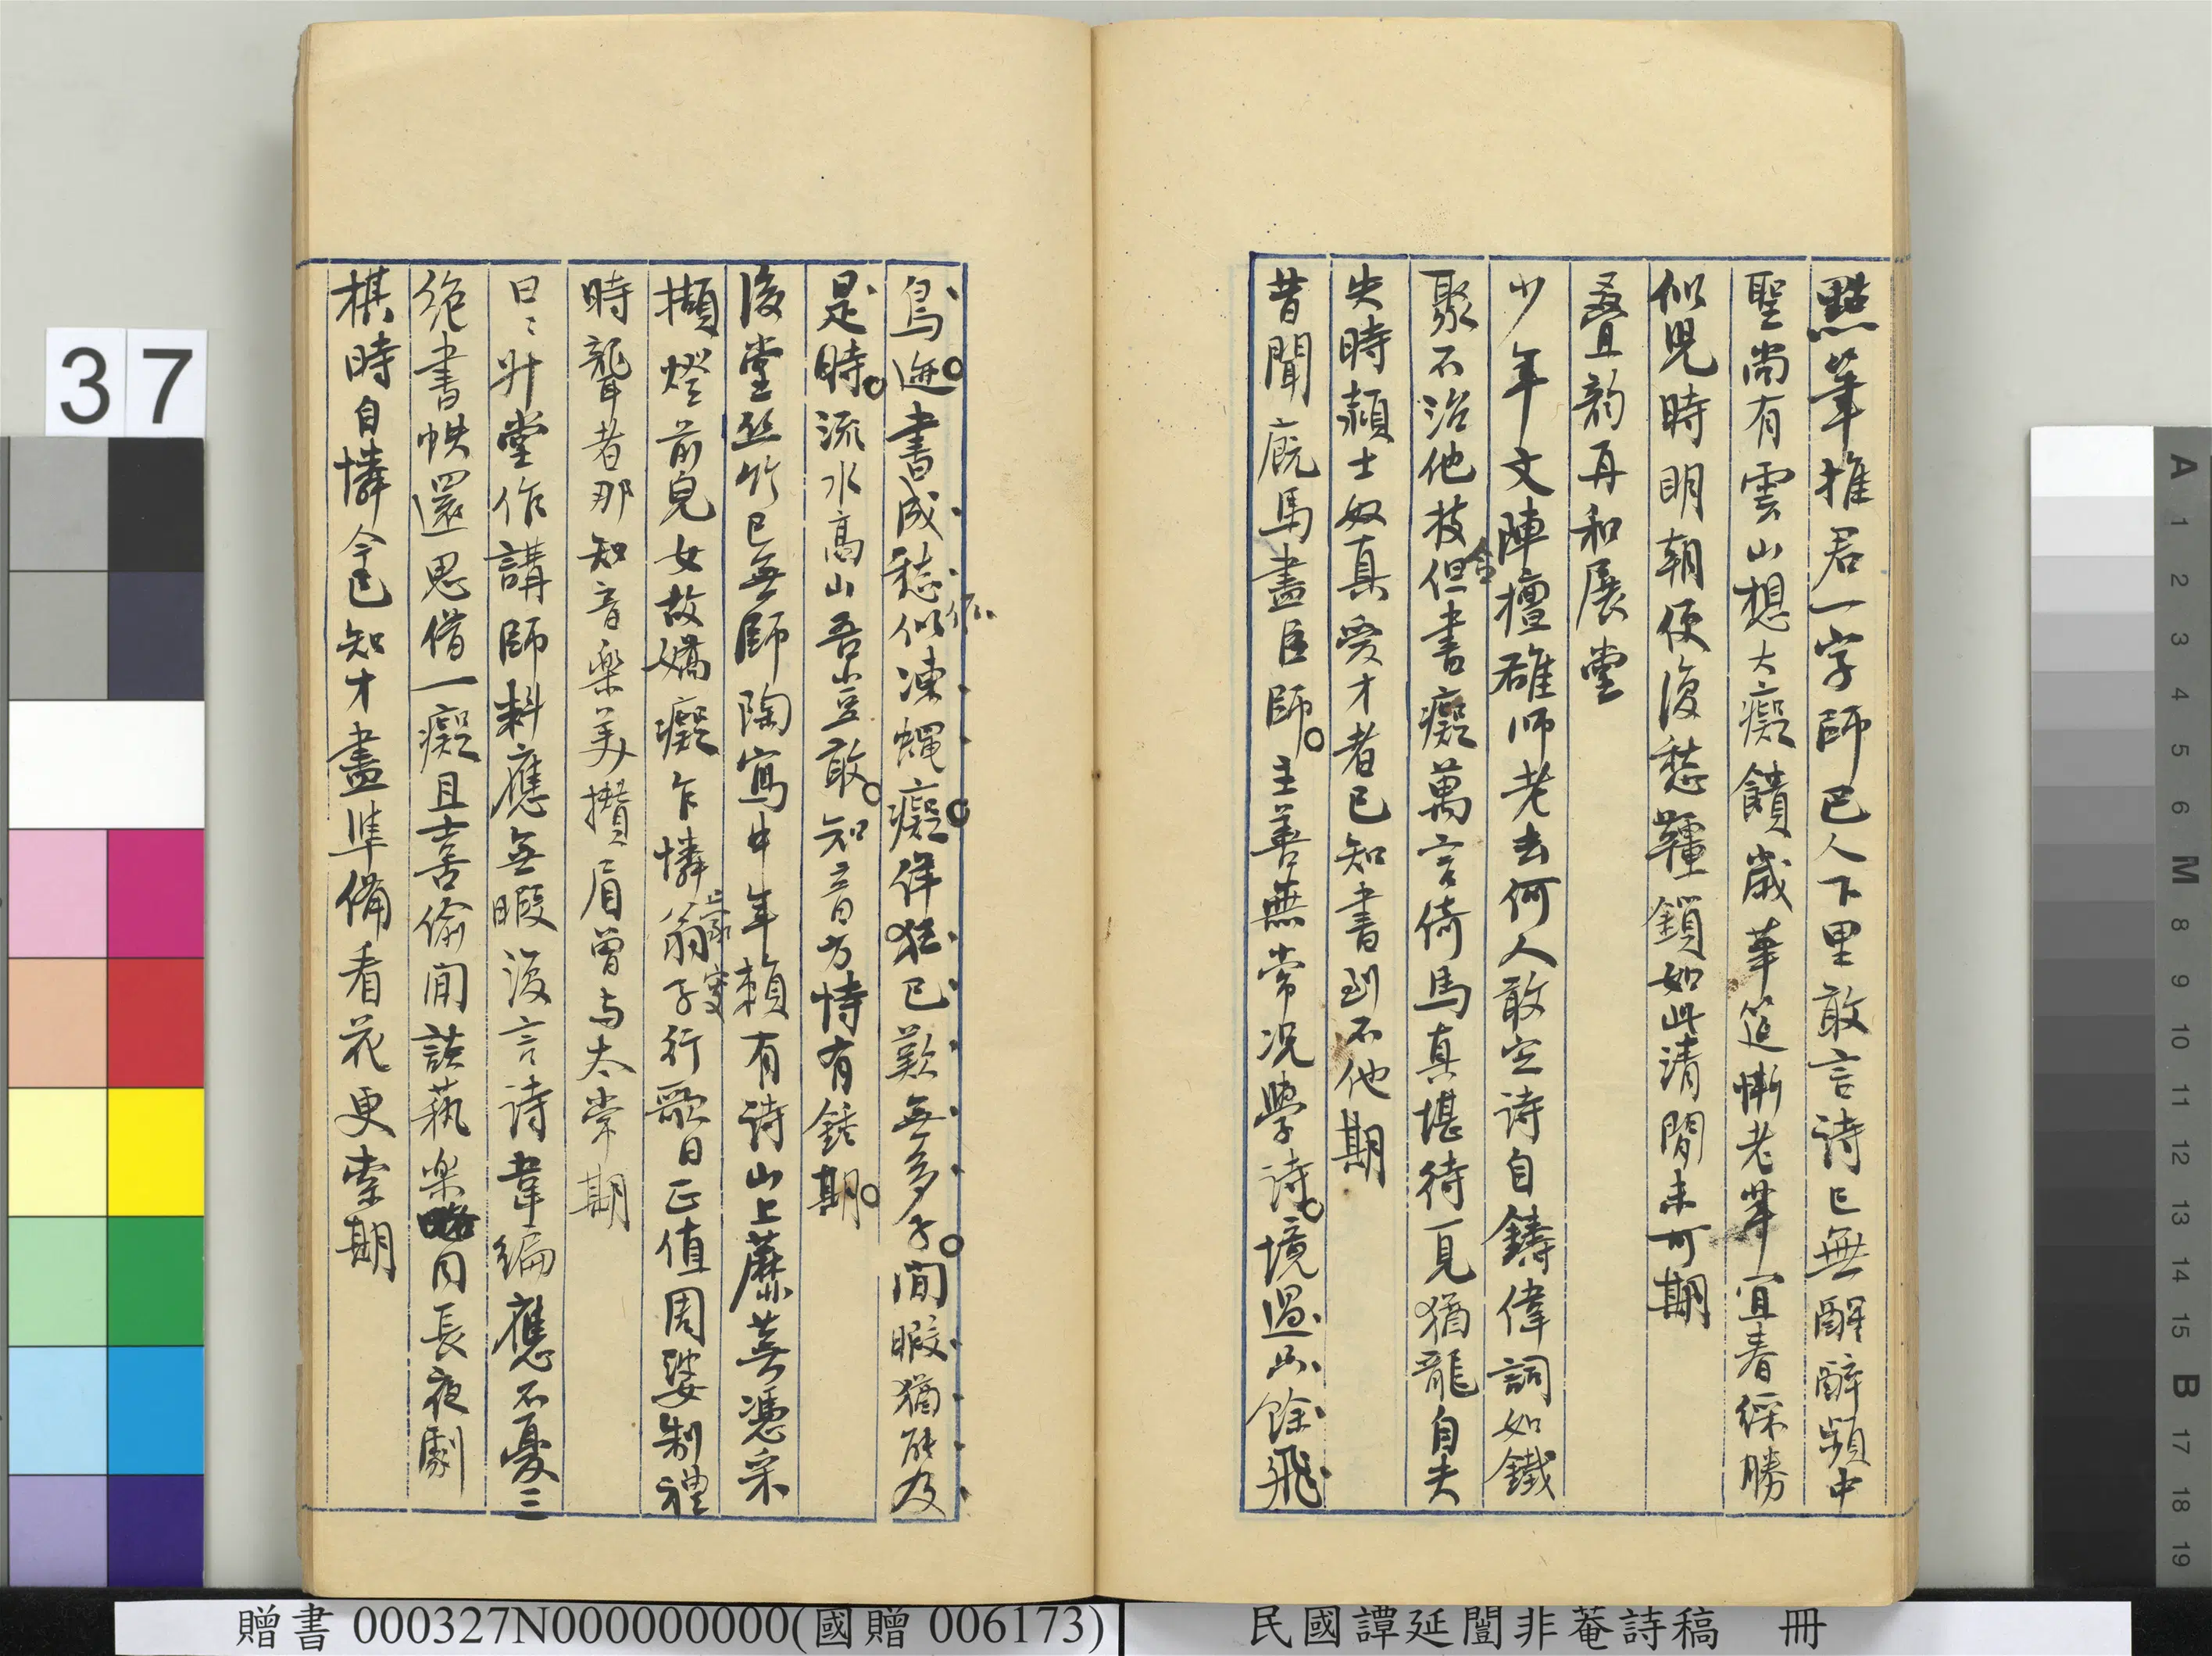 點筆推君一字師已人下里敢言詩已無醒醉頻中
聖尚有雲山想大癡饋歲華筵慚老筆宜春綵勝
似兒時明朝便復愁韁鎖如此清閒未可期
疊韵再和展堂
少年文陣擅雄師老去何人敢定詩自鑄偉詞如鐵
聚不治他技但書癡萬言倚馬真堪待一見猶龍自夫
失時穎士奴真愛才者已知書到不他期
昔聞廐馬盡臣師主善無常況學詩境過亦餘飛
鳥迹書成愁似凍蠅癡佯狂已歎無多子閒暇猶能及
依
是時流水高山吾豈敢知音方恃有鍾期
後堂絲竹已無師陶寫中年賴有詩山上蘼蕪憑采
擷燈前兒女故嬌癡乍憐翁子行歌日正值周婆制禮
時聾者那知音樂美攢眉曾与太常期
日日升堂作講師料應無暇復言詩韋編應不憂三
絕書帙還思借一癡且喜偷閒談執樂同長夜劇
棋時自憐今已知才盡準備看花更索期
37
贈書 000327N000000000(國贈 006173)
民國譚延闓非菴詩稿 冊
A 1 2 3 4 5 6 M 8 9 10 11 12 13 14 15 B 17 18 19